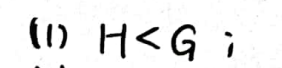 (1) H<G ;